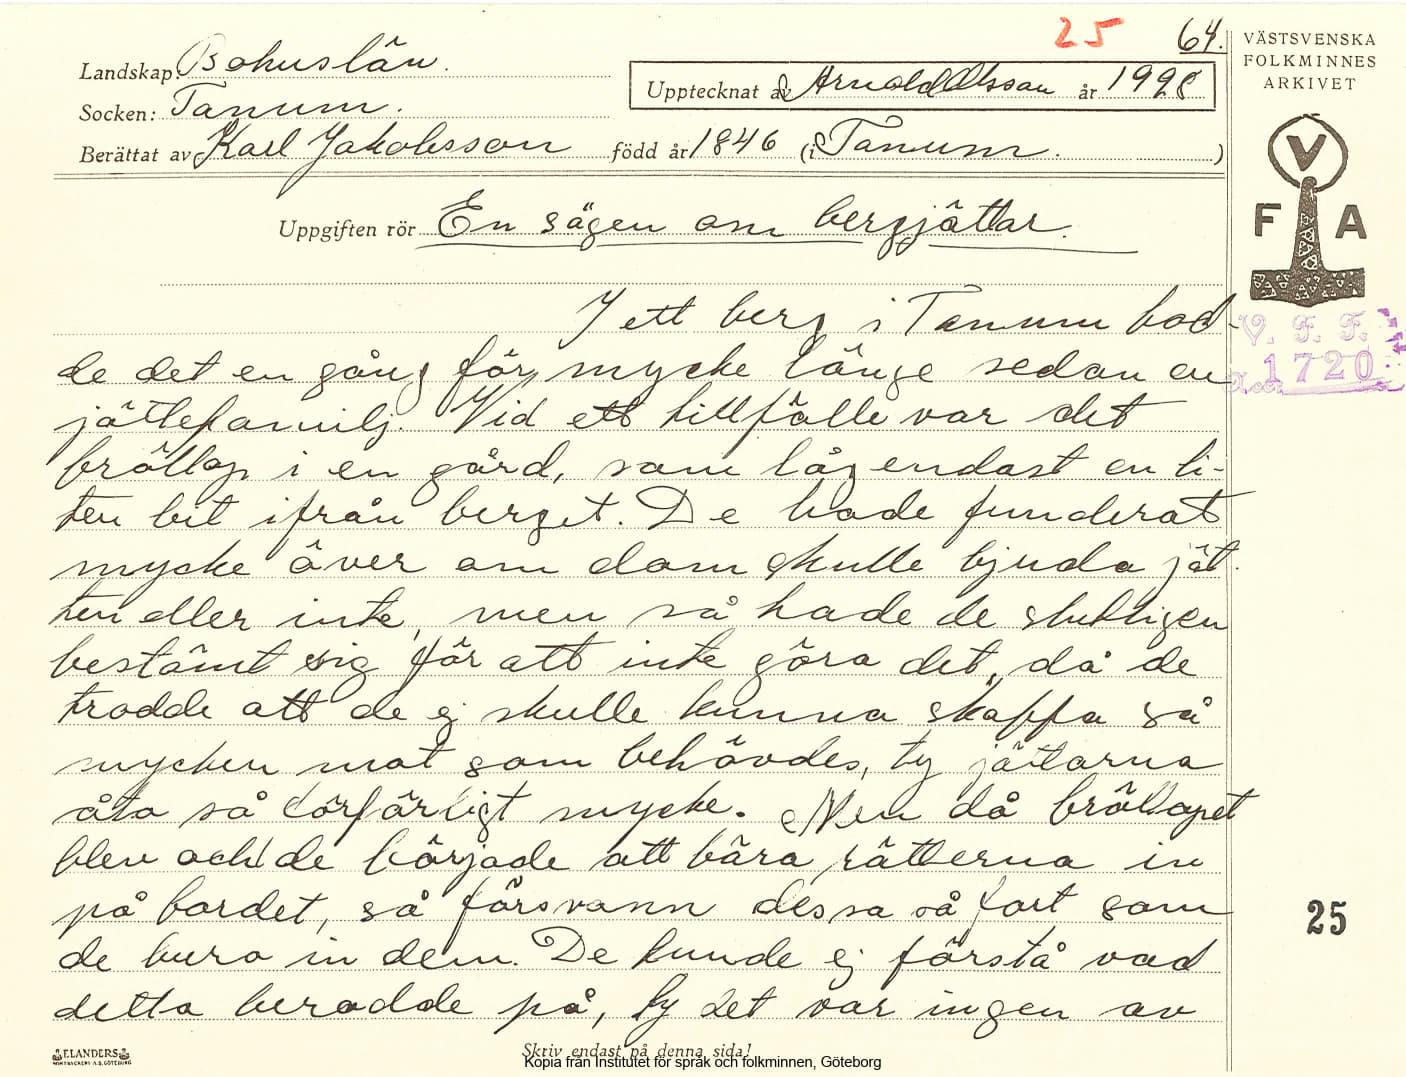 25 64.
VÄSTSVENSKA
FOLKMINNES
ARKIVET
Landskap: Bohuslän.
Upptecknat av Arnold Olsson år 1928
Socken: Tanum.
Berättat av Karl Jakobsson född år 1846 (i Tanum. )
V
F A
Uppgiften rör En sägen om bergjättar.
I ett berg i Tanum bod-
V. F. F.
de det en gång för mycke länge sedan en
1720
jättefamilj. Vid ett tillfälle var det
bröllop i en gård, som låg endast en li-
ten bit ifrån berget. De hade funderat
mycke över om dom skulle bjuda jät-
ten eller inte, men så hade de slutligen
bestämt sig för att inte göra det, då de
trodde att de ej skulle kunna skaffa så
mycken mat som behövdes, ty jättarna
åto så förfärligt mycke. Men då bröllopet
blev och de började att bära rätterna in
på bordet, så försvann dessa så fort som
25
de buro in dem. De kunde ej förstå vad
detta berodde på, ty det var ingen av
ELANDERS
Skriv endast på denna sida!
Kopia från Institutet för språk och folkminnen, Göteborg